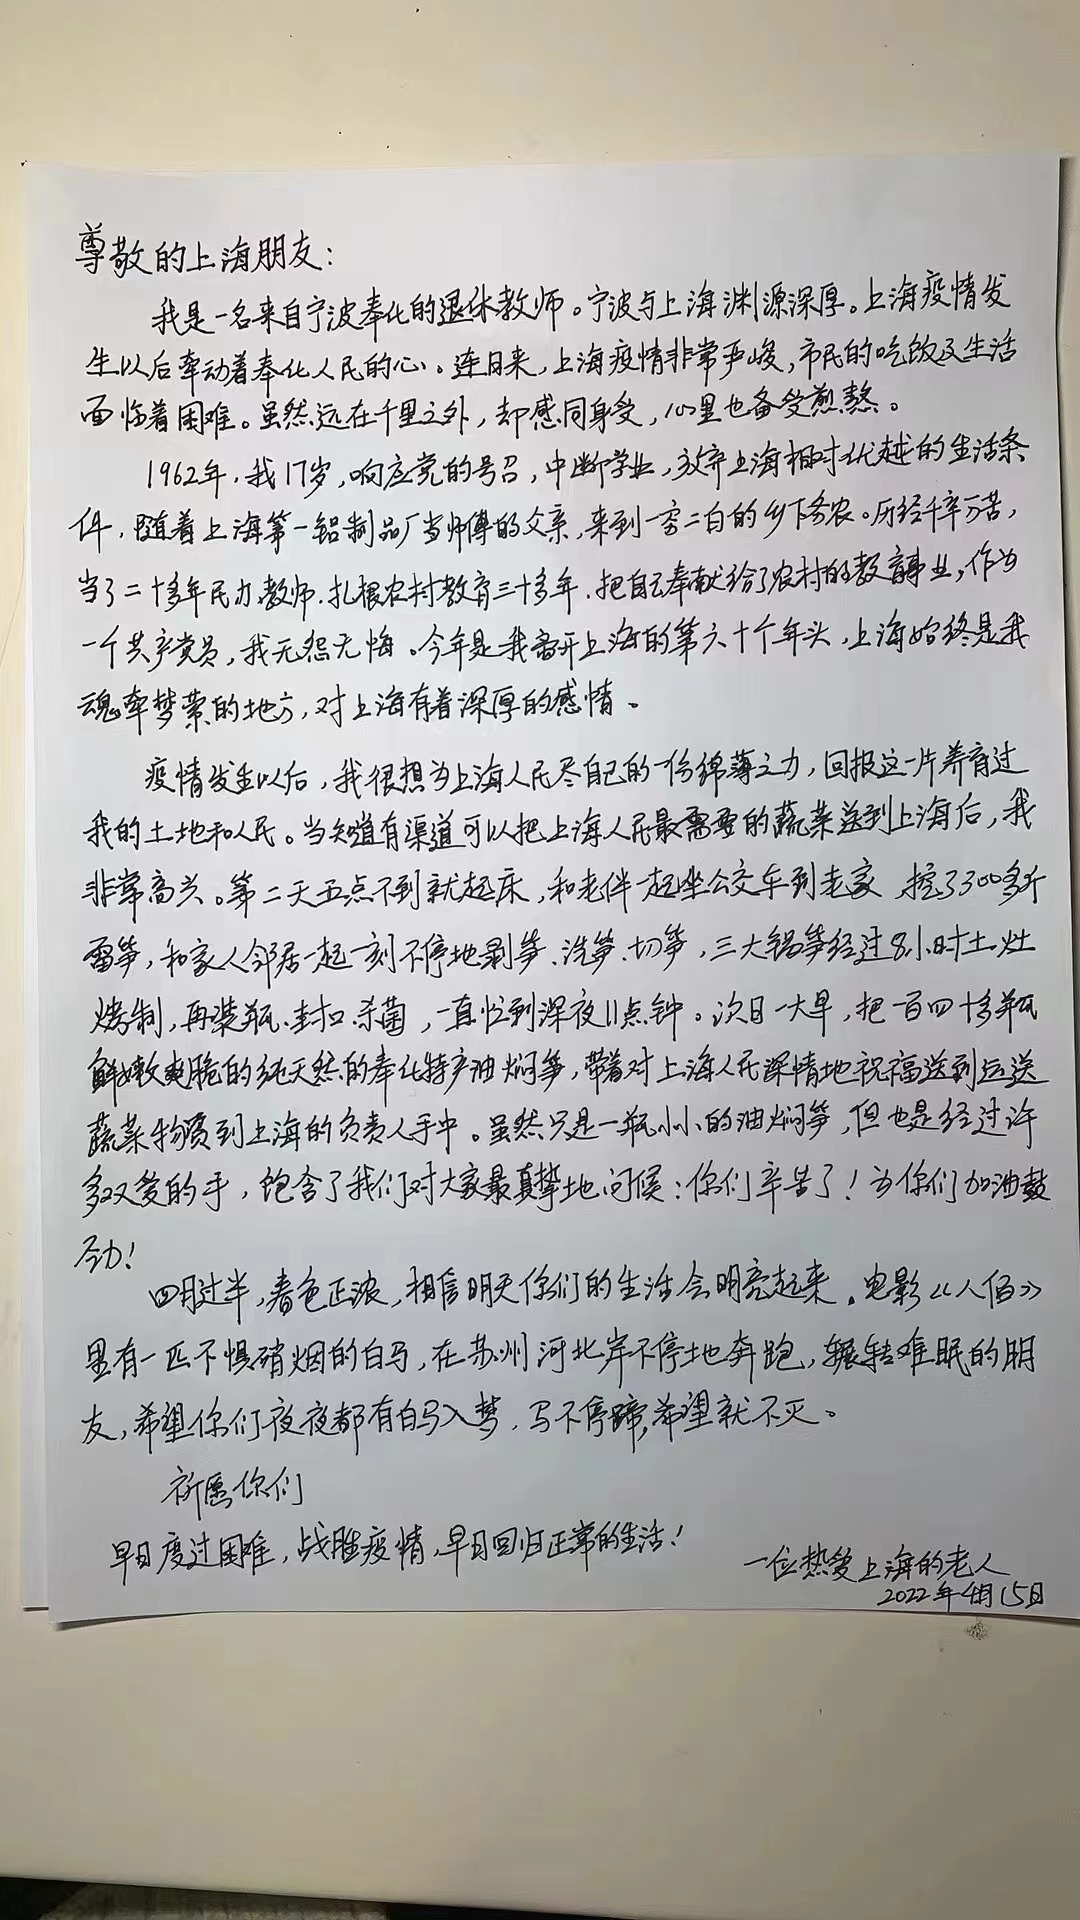 尊敬的上海朋友：
我是一名来自宁波奉化的退休教师。宁波与上海渊源深厚。上海疫情发
生以后牵动着奉化人民的心。连日来，上海疫情非常严峻，市民的吃饭及生活
面临着困难。虽然远在千里之外，却感同身受，心里也备受煎熬。
1962年，我17岁，响应党的号召，中断学业，放弃上海相对优越的生活条
件，随着上海第一铝制品厂当师傅的父亲，来到一穷二白的乡下务农。历经千辛万苦，
当了二十多年民办教师，扎根农村教育三十多年，把自己奉献给了农村的教育事业，作为
一个共产党员，我无怨无悔。今年是我离开上海的第六十个年头，上海始终是我
魂牵梦萦的地方，对上海有着深厚的感情。
疫情发生以后，我很想为上海人民尽自己的一份绵薄之力，回报这一片养育过
我的土地和人民。当知道有渠道可以把上海人民最需要的蔬菜送到上海后，我
非常高兴。第二天五点不到就起床，和老伴一起坐公交车到老家 挖了300多斤
雷笋，和家人邻居一起一刻不停地剥笋、洗笋、切笋，三大锅笋经过8小时土灶
烤制，再装瓶、封口、杀菌，一直忙到深夜11点钟。次日一大早，把一百四十多瓶
鲜嫩爽脆的纯天然的奉化特产油焖笋，带着对上海人民深情地祝福送到运送
蔬菜物资到上海的负责人手中。虽然只是一瓶小小的油焖笋，但也是经过许
多双爱的手，饱含了我们对大家最真挚地问候：你们辛苦了！为你们加油鼓
劲！
四月过半，春色正浓，相信明天你们的生活会明亮起来。电影《八佰》
里有一匹不惧硝烟的白马，在苏州河北岸不停地奔跑，辗转难眠的朋
友，希望你们夜夜都有白马入梦，马不停蹄，希望就不灭。
祈愿你们
早日度过困难，战胜疫情，早日回归正常的生活！
一位热爱上海的老人
2022年4月15日